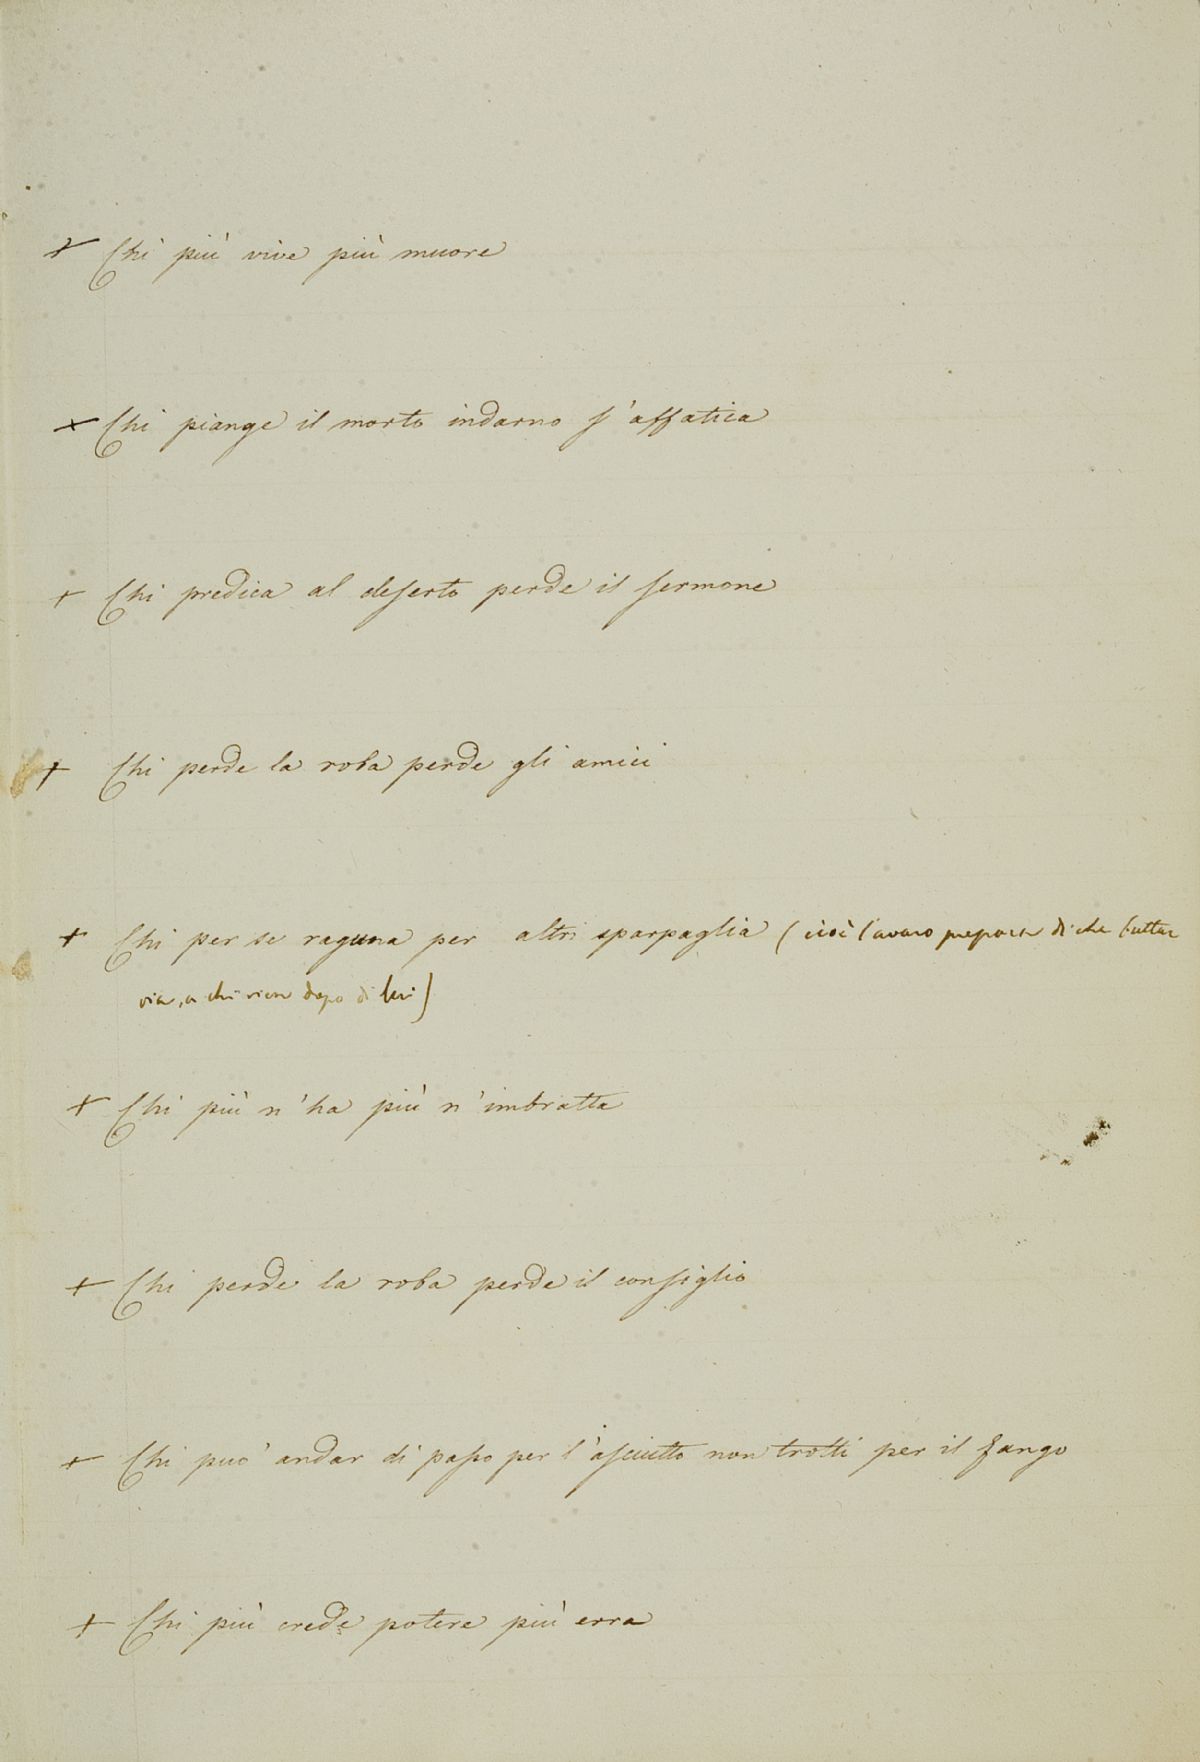 + Chi più vive più muore
+ Chi piange il morto indarno s'affatica
+ Chi predica al deserto perde il sermone
+ Chi perde la roba perde gli amici
+ Chi per se raguna per altri sparpaglia (cioè l'avaro prepara di che buttar
via, a chi vien dopo di lui)
+ Chi più n'ha più n'imbratta
+ Chi perde la roba perde il consiglio
+ Chi può andar di passo per l'asciutto non trotti per il fango
+ Chi più crede potere più erra